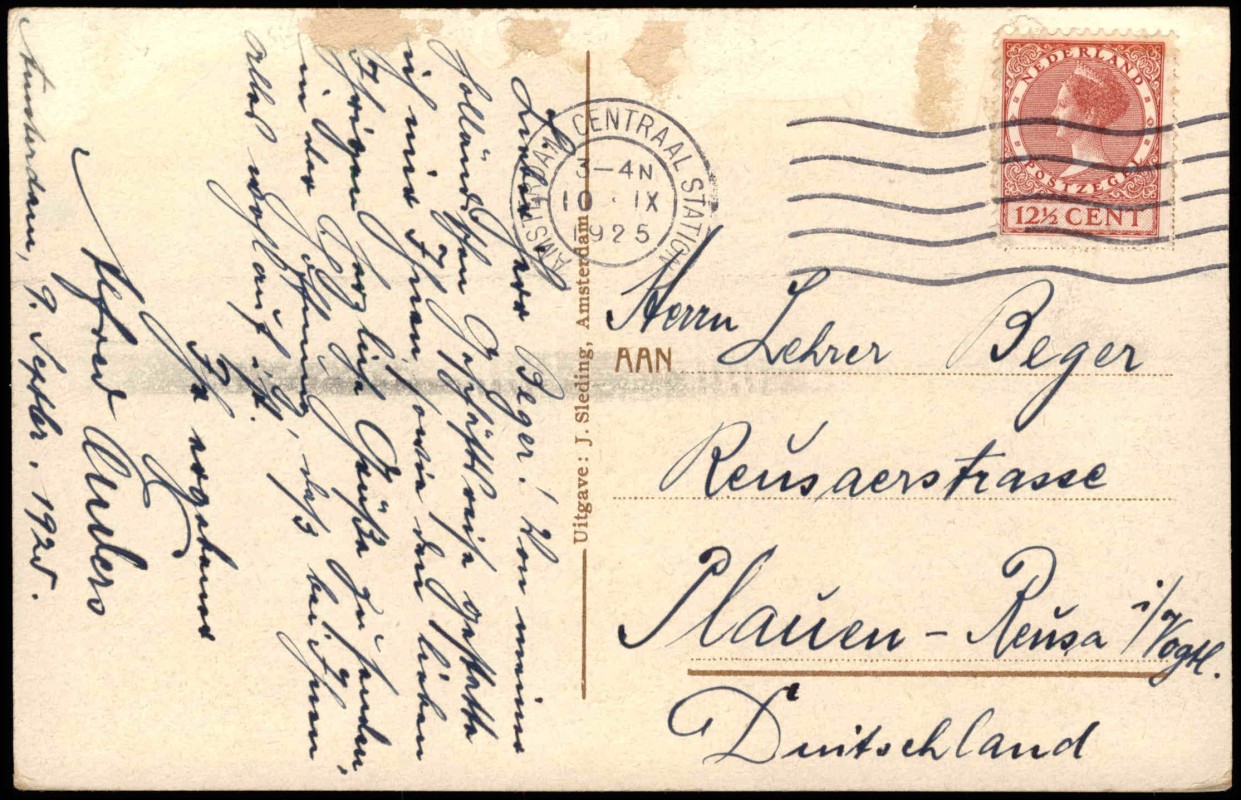 Lieber Herr Beger! Von meiner
holländischen Geschäftsreise gestatte
ich mir Ihnen sowie den lieben
Ihrigen herzliche Grüße zu senden,
in der Hoffnung, daß bei Ihnen
alles wohlauf ist.
Ihr ergebener
Alfred Anders
Amsterdam, 9. Septbr. 1925.
Uitgave: J. Sleding, Amsterdam
AMSTERDAM CENTRAAL STATION
3-4N
10 IX
1925
NEDERLAND
POSTZEGEL
12½ CENT
Herrn Lehrer Beger
AAN
Reusaerstrasse
Plauen - Reusa i/Vogtl.
Deutschland